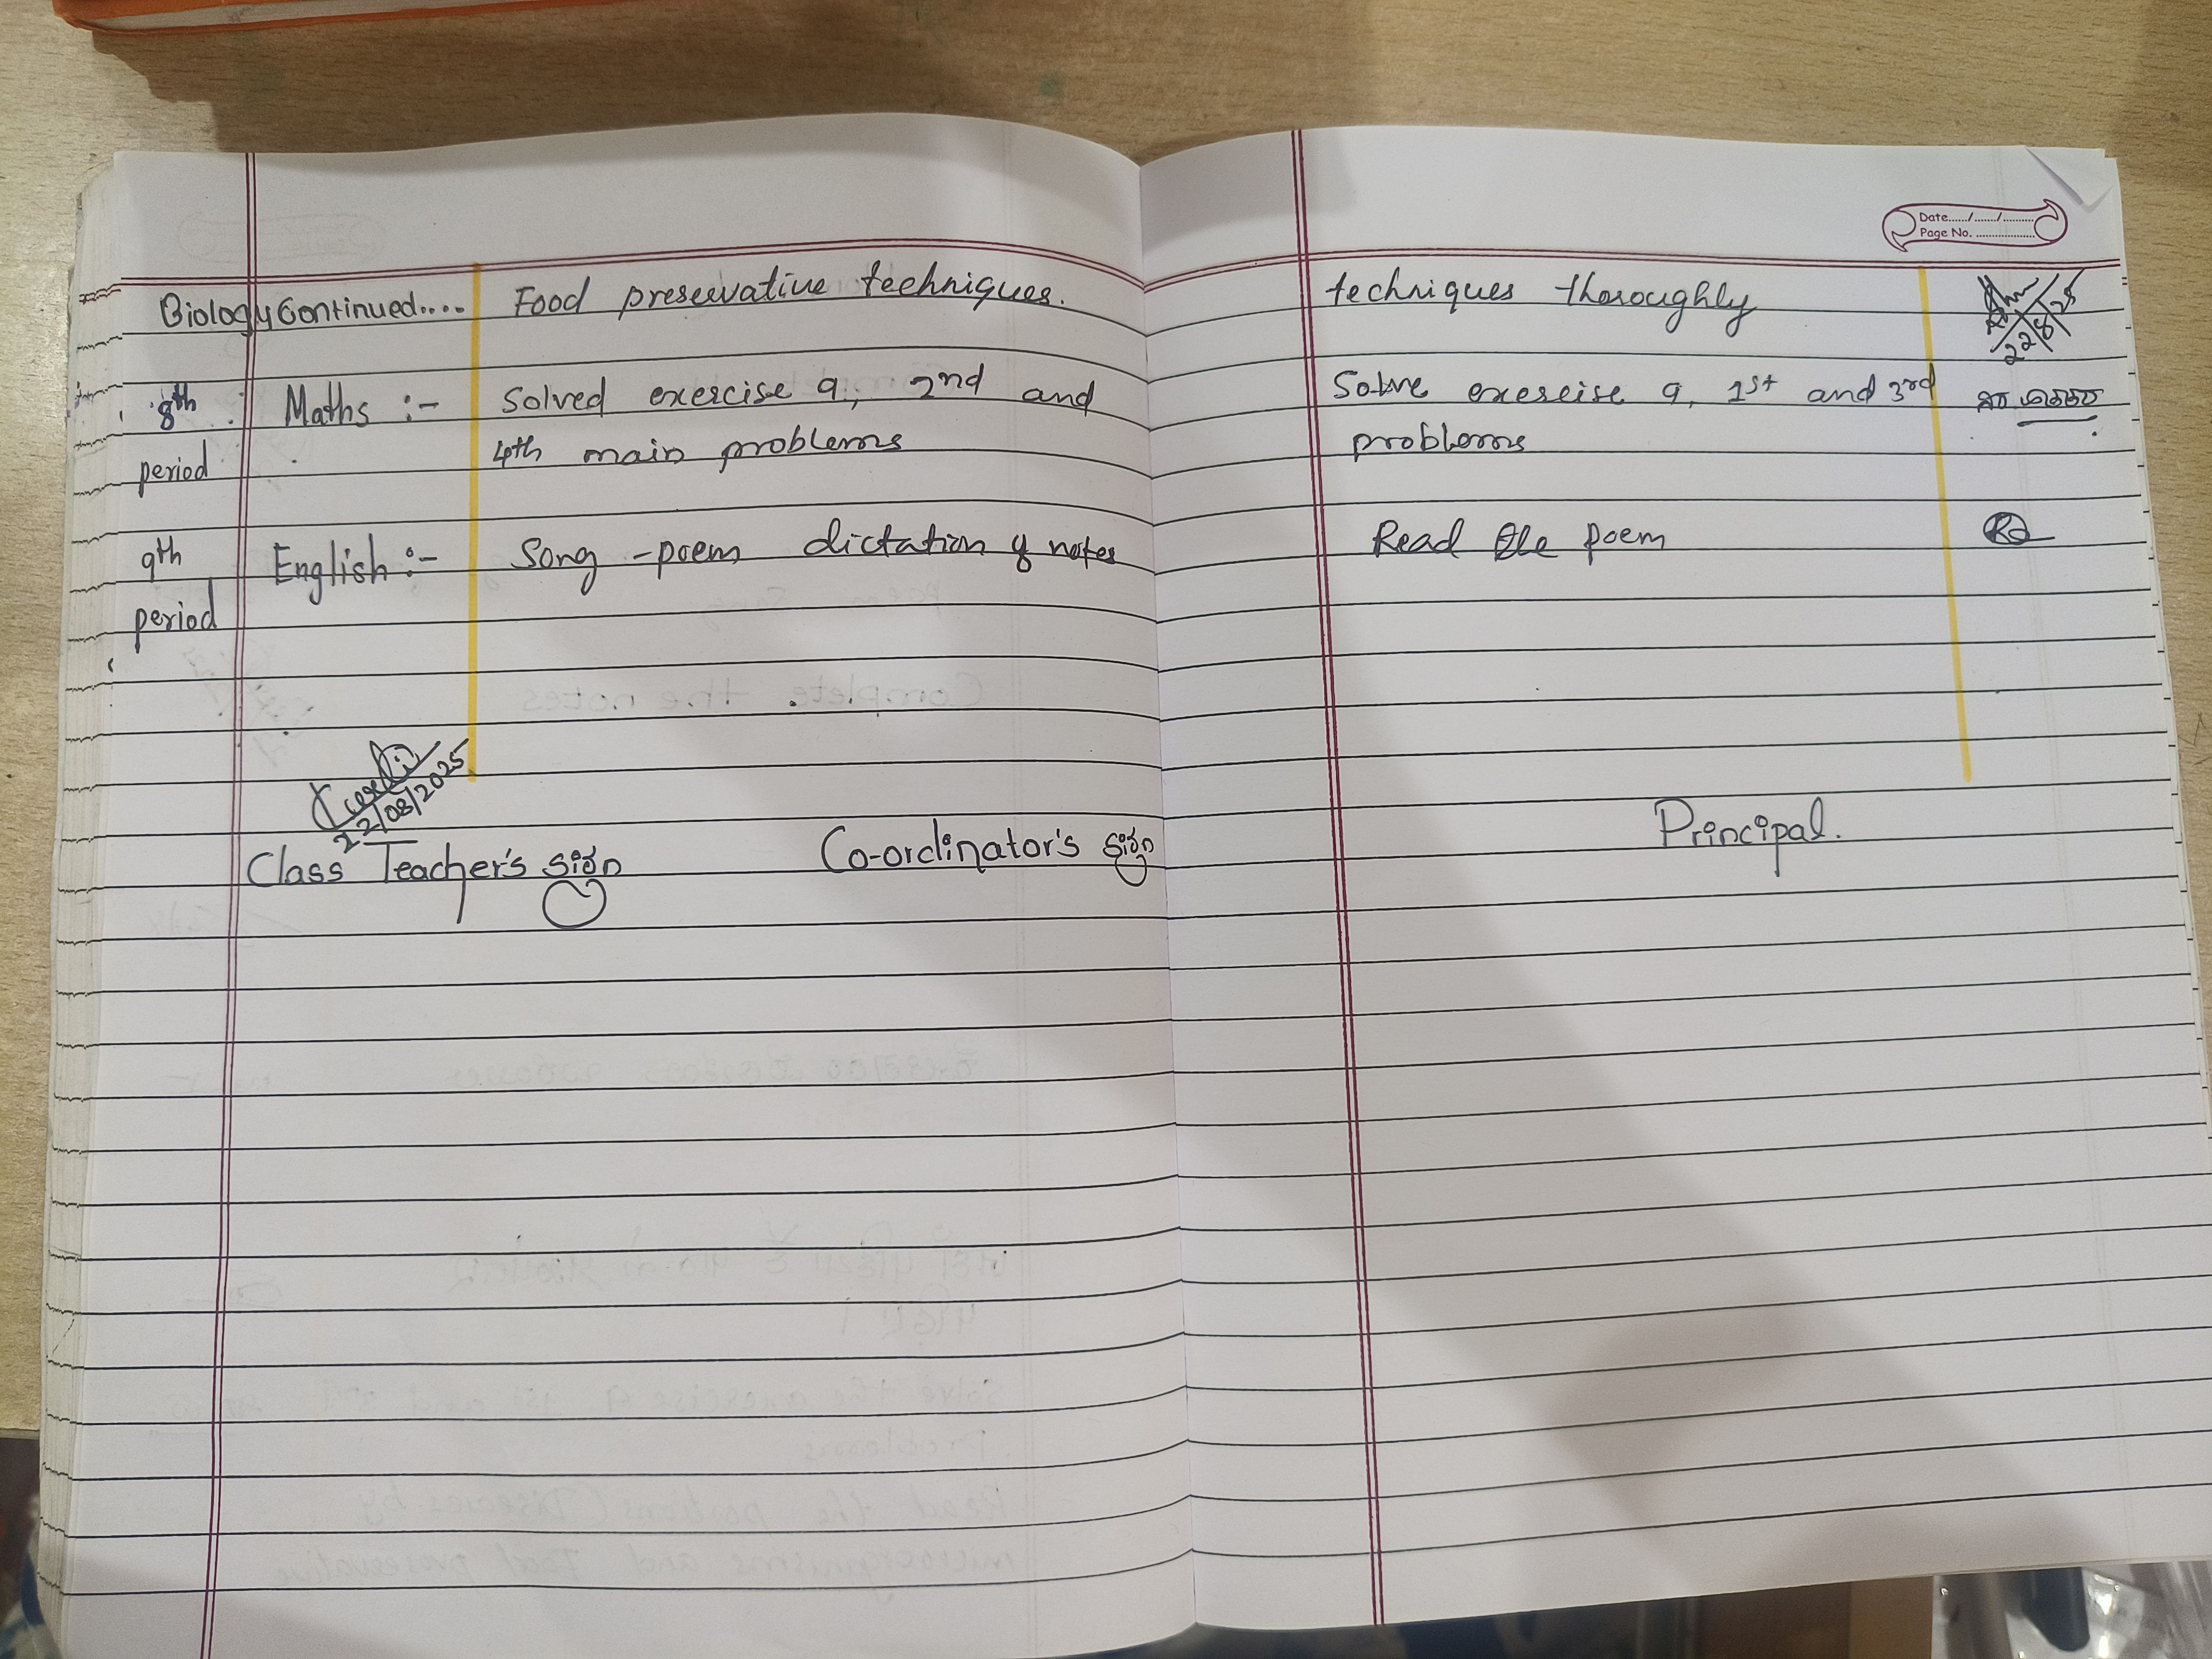 Date....../......./..........
Page No. ...................
Biology Continued.... Food preservative techniques. techniques thoroughly
22/8/25
8th Maths :- Solved exercise 9, 2nd and Solve exercise 9, 1st and 3rd
period 4th main problems problems
9th English :- Song - poem dictation of notes Read the poem
period
22/08/2025
Class Teacher's sign Co-ordinator's sign Principal.